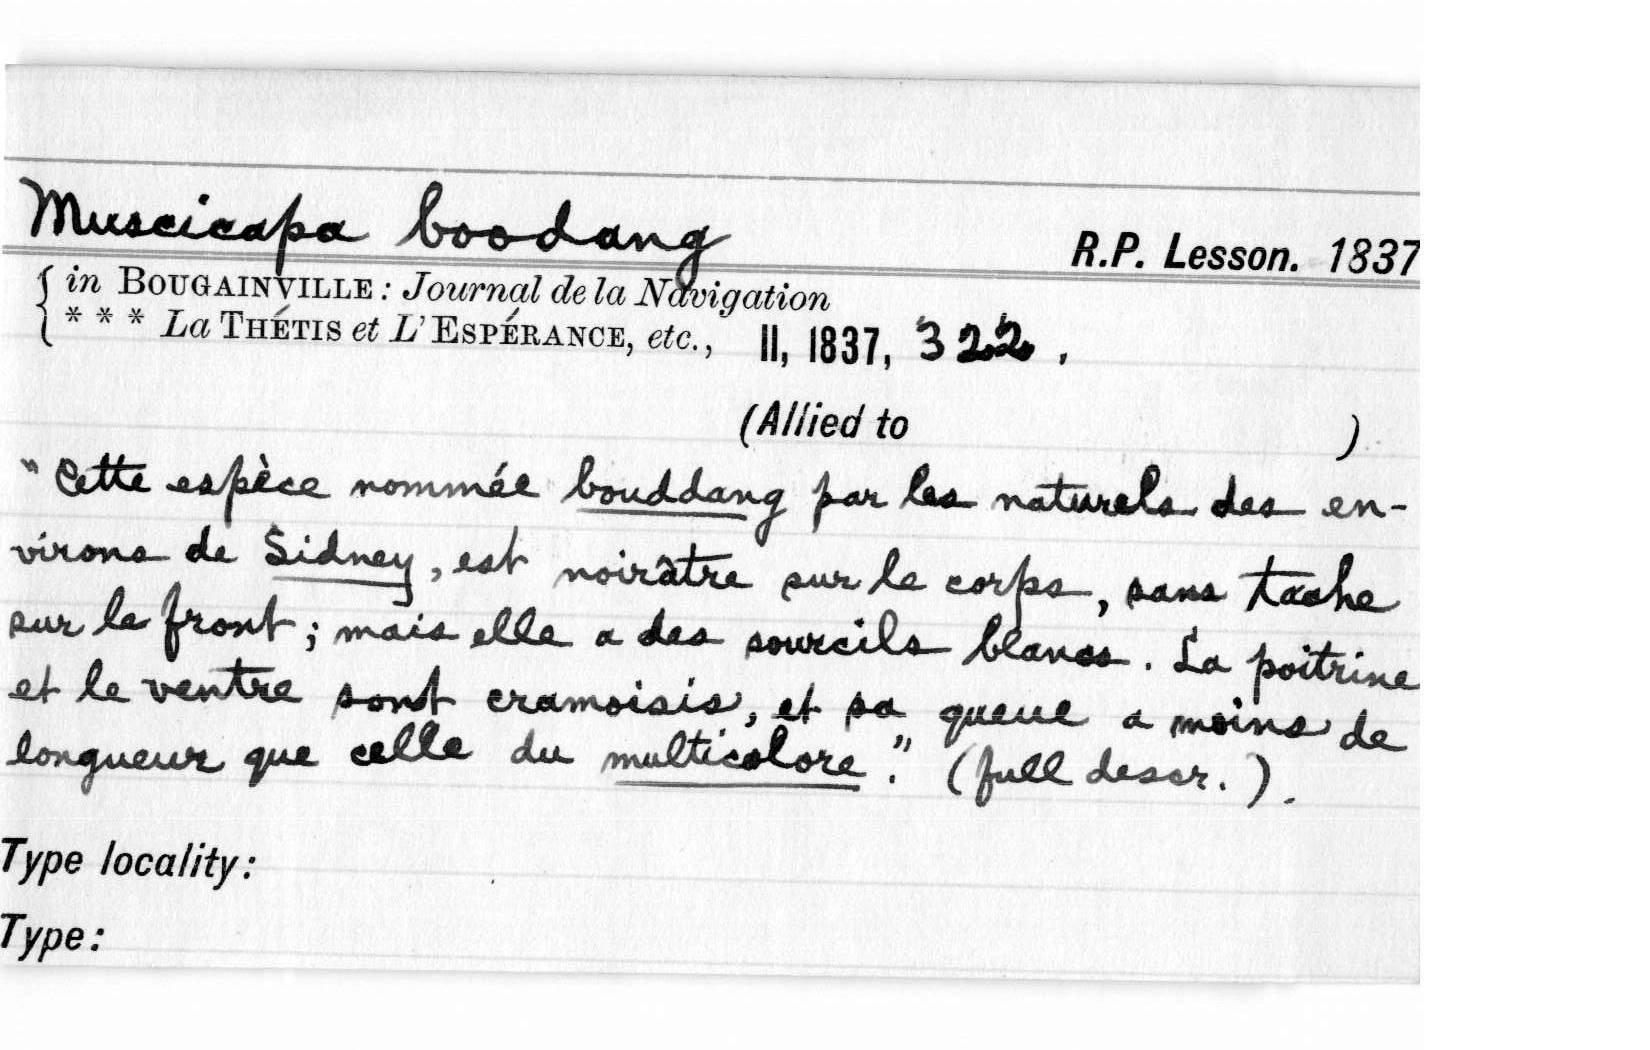 Muscicapa boodang
R.P. Lesson. 1837
in BOUGAINVILLE: Journal de la Navigation
* * * La THÉTIS et L'ESPÉRANCE, etc., II, 1837, 322.
(Allied to )
"Cette espèce nommée bouddang par les naturels des en-
virons de Sidney, est noirâtre sur le corps, sans tache
sur le front; mais elle a des sourcils blancs. La poitrine
et le ventre sont cramoisis, et sa queue a moins de
longueur que celle du multicolore." (full descr.).
Type locality:
Type: